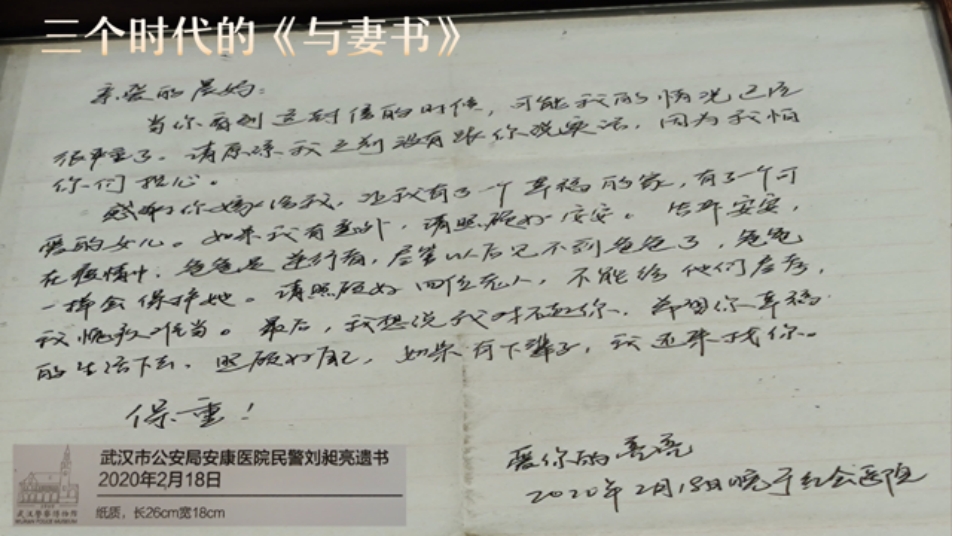 三个时代的《与妻书》
亲爱的晨妈：
当你看到这封信的时候，可能我的情况已经
很严重了。请原谅我之前没有跟你说实话，因为我怕
你们担心。
感谢你嫁给我，让我有了一个幸福的家，有了一个可
爱的女儿。如果我有意外，请照顾好安安。告诉安安，
在疫情中，爸爸是逆行者，尽管以后见不到爸爸了，爸爸
一样会保护她。请照顾好四位老人，不能给他们尽孝，
我愧疚难当。最后，我想说我对不起你，希望你幸福
的生活下去，照顾好自己，如果有下辈子，我还来找你。
保重！
爱你的亮亮
2020年2月18日晚于红会医院
武汉市公安局安康医院民警刘昶亮遗书
2020年2月18日
纸质，长26cm宽18cm
武汉警察博物馆
WUHAN POLICE MUSEUM